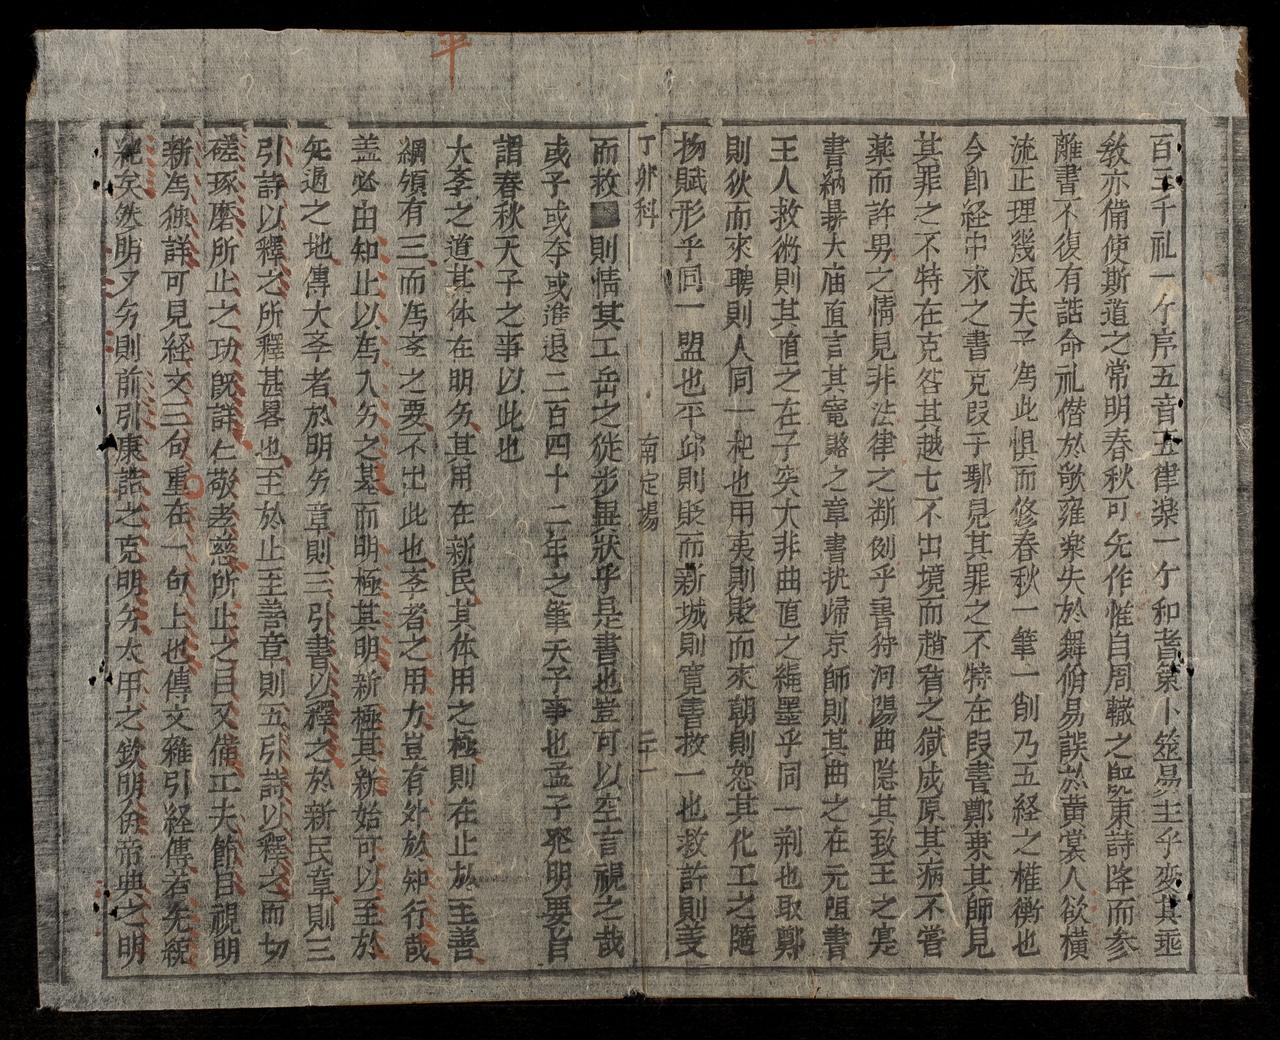 百三千礼一个序五音五律楽一个和者策卜筮易主乎変其垂
教亦備使斯道之常明春秋可无作惟自周轍之既東詩降而参
離書不復有誥命礼僭於歌雍楽失於舞佾易誤於黄裳人欲横
流正理幾泯夫子為此惧而修春秋一筆一削乃五経之権衡也
今即経中求之書克段于鄢見其罪之不特在段書鄭棄其師見
其罪之不特在克咎其越七不出境而趙盾之獄成原其病不嘗
薬而許男之情見非法律之断例乎書狩河陽曲隠其致王之寔
書納鼎大庙直言其寘賂之章書执帰京師則其曲之在元咺書
王人救衛則其直之在子突大非曲直之縄墨乎同一荆也取鄭
則狄而來聘則人同一杞也用夷則貶而來朝則恕其化工之随
物賦形乎同一盟也平邱則貶而新城則寛書救一也救許則美
丁卯科
南定場
二十一
而救則情其工岳之徙步異狀乎是書也豈可以空言視之哉
或予或夺或進退二百四十二年之筆天子事也孟子発明要旨
謂春秋天子之事以此也
大斈之道其体在明𠔃其用在新民其体用之極則在止於至善
綱領有三而為斈之要不出此也斈者之用力豈有外於知行哉
盖必由知止以為入𠔃之基而明極其明新極其新始可以至於
无過之地傳大斈者於明𠔃章則三引書以釋之於新民章則三
引詩以釋之所釋甚畧也至於止至善章則五引詩以釋之而切
磋琢磨所止之功既詳仁敬孝慈所止之目又備工夫節目視明
新為独詳可見経文三句重在一句上也傳文雜引経傳若无統
紀矣然明又𠔃則前引康誥之克明𠔃太甲之欽明𠔃帝典之明